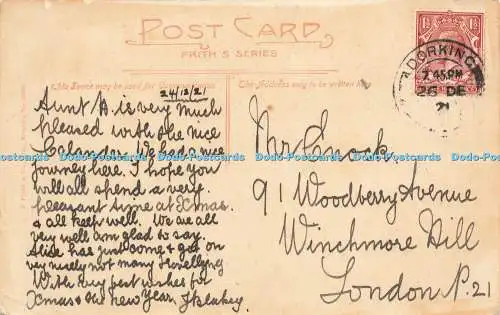 POST CARD
FRITH'S SERIES
This Space may be used for
The Address only to be written here
24/12/21
Aunt A. is very much
pleased with the nice
Calendar. We had a nice
journey here. I hope you
will all spend a very
pleasant time at Xmas.
& all keep well. We are all
very well am glad to say.
has just come & got on
very nicely not many travellyng
With very best wishes for
Xmas & the new Year, J Blakey
DORKING
7.45 PM
26 DE
21
Mr Snook.
91 Woodberry Avenue
Winchmore Hill
London N.21
Dodo-Postcards Dodo-Postcards Dodo-Postcards Dodo-Postcards Dodo-Postcards